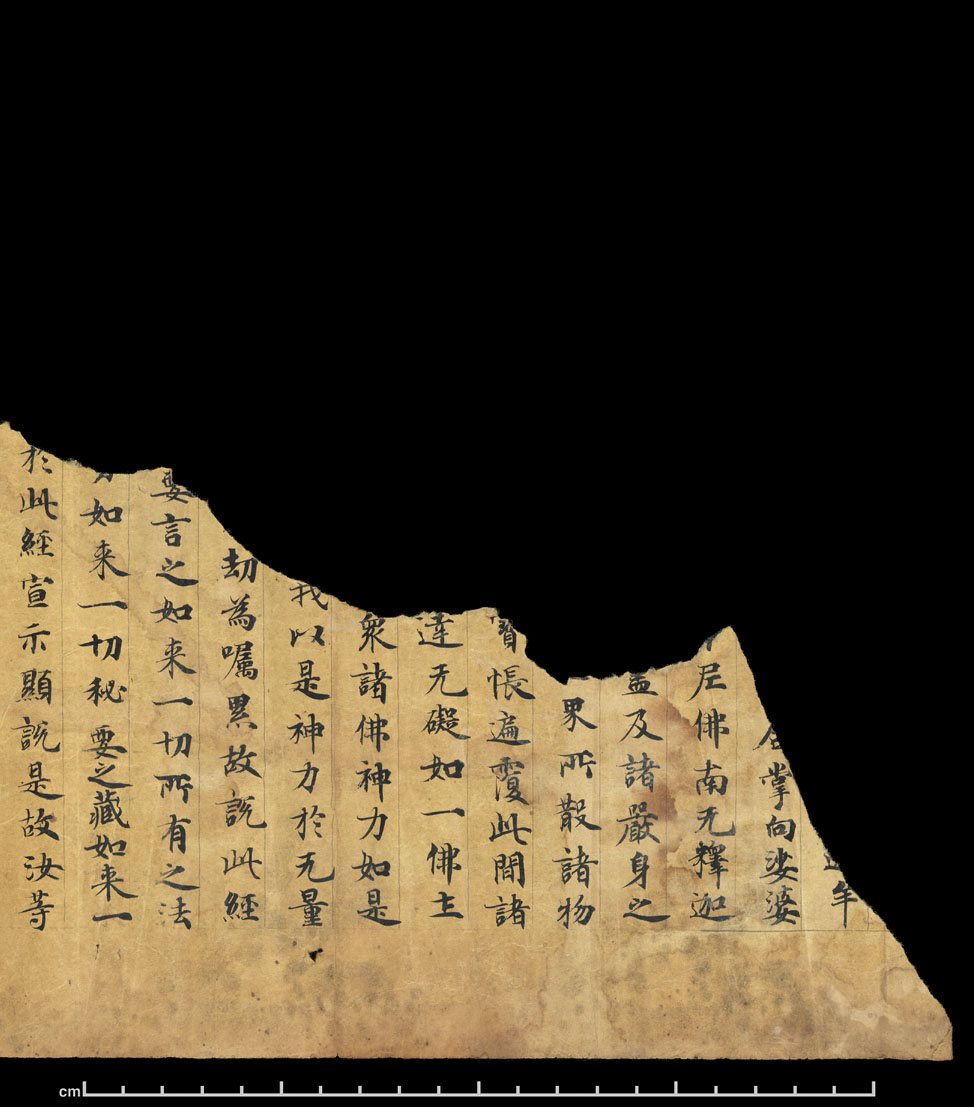 牟
合掌向娑婆
尼佛南无釋迦
盖及諸嚴身之
界所散諸物
寶帳遍覆此間諸
達无礙如一佛土
衆諸佛神力如是
我以是神力於无量
劫為囑累故說此經
要言之如来一切所有之法
力如来一切祕要之藏如来一
於此經宣示顯說是故汝等